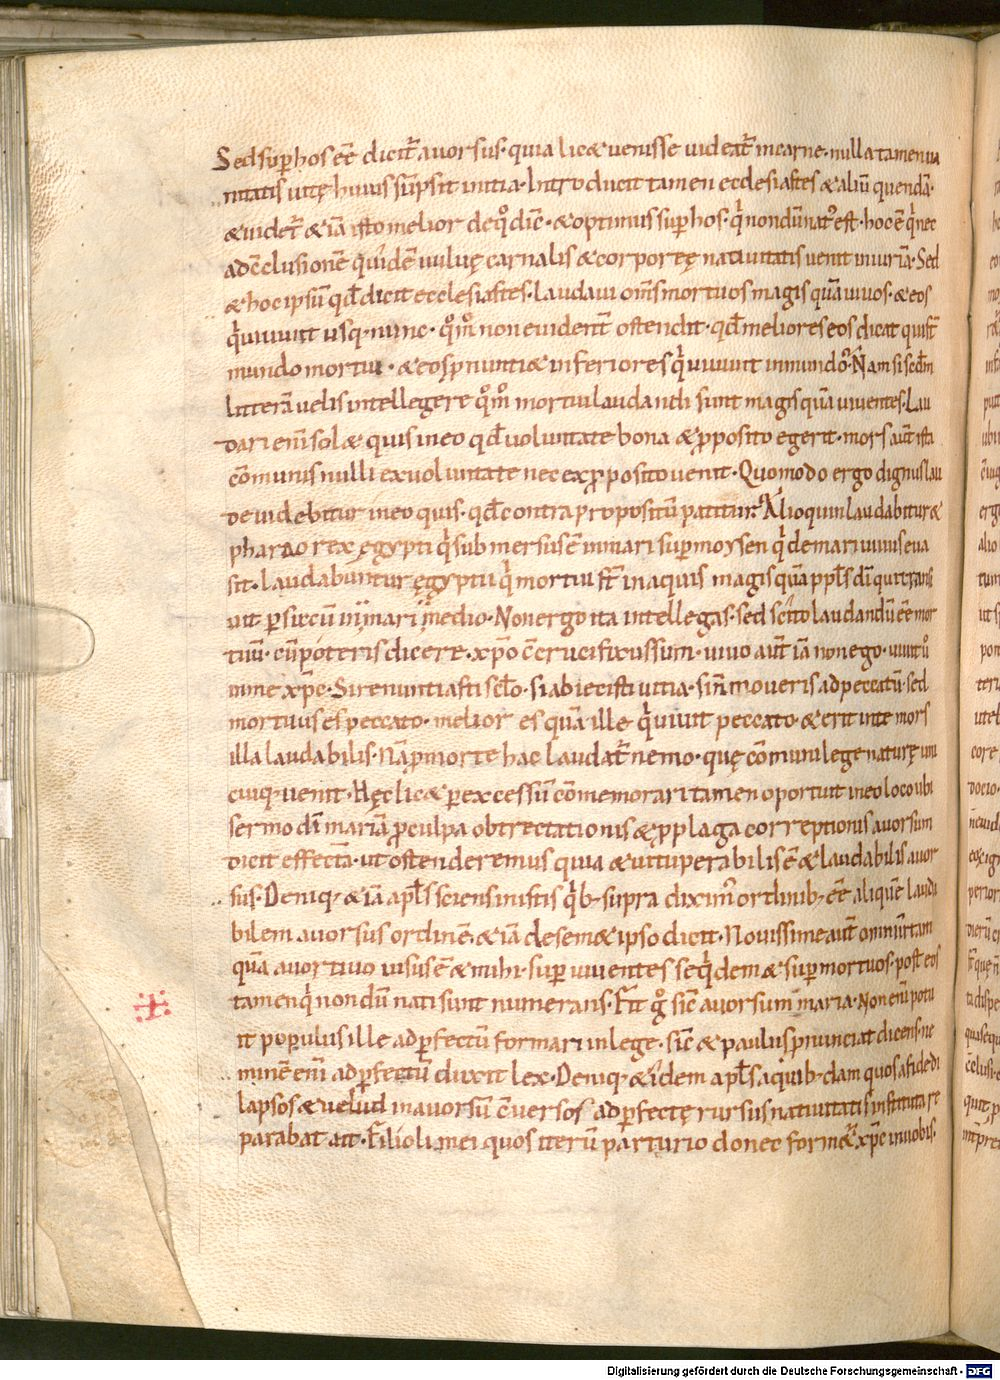 Sedsup̄hos eē̄ dicit᷑ auorsus· quia lic& uenisse uideat᷑ incarne· nulla tamen ua
nitatis uitę huius sūpsit initia· Introducit tamen ecclesiastes & aliū quendā·
& uidet᷑ & iā isto melior de q̊ dic̄· & optimus sup̄ hos· q̓ nondū nat᷒ est· hoc ē q̓ nec
ad c̄clusionē quidē uuluę carnalis & corporeę natiuitatis uenit iniuriā· Sed
& hoc ipsū qđ dicit ecclesiastes· Laudaui om̄s mortuos magis quā uiuos· & eos
q̓ uiuunt usq· nunc· q̊m̊ non euident᷑ ostendit· qđ meliores eos dicat qui st̄
mundo mortui· & eos p̄nunti& inferiores q̓ uiuunt in mundo· Nam si sedm̄
litterā uelis intellegere q̊m̊ mortui laudandi sunt magis quā uiuentes· Lau
dari eni̅ sol& quis in eo qđ uoluntate bona & p̱posito egerit· mors aut̄ ista
cōmunis nulli ex uoluntate nec ex p̱posito uenit· Quomodo ergo dignus lau
de uidebitur in eo quis· qđ contra propositū patitur· Alioquin laudabitur &
pharao rex ęgypti q̓ submersus ē in mari sup̄ moysen q̓ de mari uiuus eua
sit· Laudabuntur ęgyptii q̓ mortui st̄ in aquis magis quā pp̄ls dī qui trans
iuit p̱ siccū in mari medio· Non ergo ita intellegas· sed scito laudandū eē̄ mor
tuū· cū poteris dicere· xp̄o c̄crucifixus sum· uiuo aut̄ iā non ego· uiuit ů
in me xp̄c· Si renuntiasti scl̄o· si abiecisti uitia· si n̄ moueris ad peccatū· sed
mortuus es peccato· melior es quā ille q̓ uiuit peccato· & erit in te mors
illa laudabilis· Nā p̱ morte hac laudat᷑ nemo· quę cōmuni lege naturę uni
cuiq· uenit· Hęc lic& p̱ excessū cōmemorari tamen oportuit in eo loco ubi
sermo dī mariā p̱ culpa obtrectationis & p̱ plaga correptionis auorsum
dicit effectā· ut ostenderemus quia & uituperabilis ē & laudabilis auor
sus· Deniq· & iā apl̄s sciens in istis q̓b· supra dixim᷒ ordinib· eē̄ aliquē lauda
bilem auorsus ordinē· & iā de sem& ipso dicit· Nouissime aut̄ omniū tam
quā auortiuo uisus ē & mihi· sup̄ uiuentes seq̓dem & sup̄ mortuos· post eos
tamen q̓ nondū nati sunt numerans· Fit g̊ sic̄ auorsum maria· Non eni̅ potu
it populus ille ad p̱fectū formari in lege· sic̄ & paulus p̱nunciat dicens· ne
minē eni̅ ad p̱fectū duxit lex· Deniq· & idem apl̄s a quib·dam quos a fide di
lapsos & uelud in auorsū c̄uersos ad p̱fectę rursus natiuitatis instituta re
parabat ait· Filioli mei quos iterū parturio donec form&ur xp̄c in uobis·
Digitalisierung gefördert durch die Deutsche Forschungsgemeinschaft - DFG